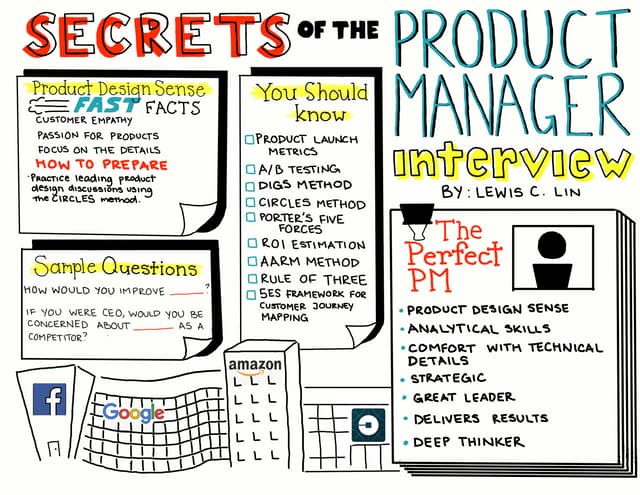 SECRETS OF THE
PRODUCT
MANAGER
interview
BY: LEWIS C. LIN
Product Design Sense
FAST FACTS
CUSTOMER EMPATHY
PASSION FOR PRODUCTS
FOCUS ON THE DETAILS
HOW TO PREPARE
·Practice leading product
design discussions using
the CIRCLES method.
Sample Questions
HOW WOULD YOU IMPROVE ______?
IF YOU WERE CEO, WOULD YOU BE
CONCERNED ABOUT ______ AS A
COMPETITOR?
You Should
know
PRODUCT LAUNCH
METRICS
A/B TESTING
DIGS METHOD
CIRCLES METHOD
PORTER'S FIVE
FORCES
ROI ESTIMATION
AARM METHOD
RULE OF THREE
5ES FRAMEWORK FOR
CUSTOMER JOURNEY
MAPPING
The
Perfect
PM
• PRODUCT DESIGN SENSE
• ANALYTICAL SKILLS
• COMFORT WITH TECHNICAL
DETAILS
• STRATEGIC
• GREAT LEADER
• DELIVERS RESULTS
• DEEP THINKER
f
Google
amazon